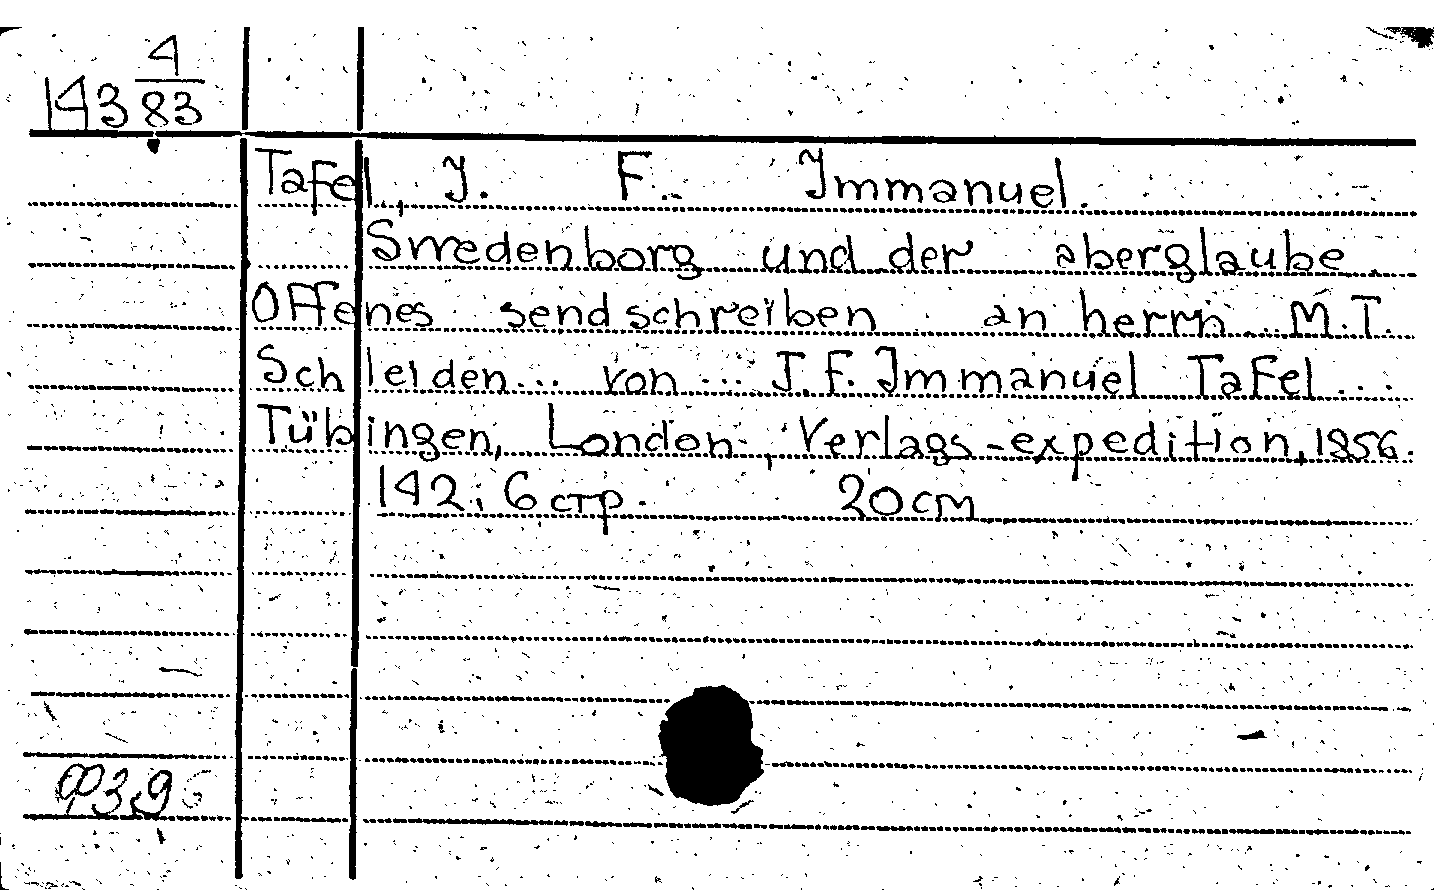 143 4/83
Tafel, J. F. Immanuel.
Swedenborg und der aberglaube.
Offenes sendschreiben an herrn M.T.
Schleiden... von... J.F. Immanuel Tafel...
Tübingen, London, Verlags-expedition, 1856.
142; 6 стр. 20 см